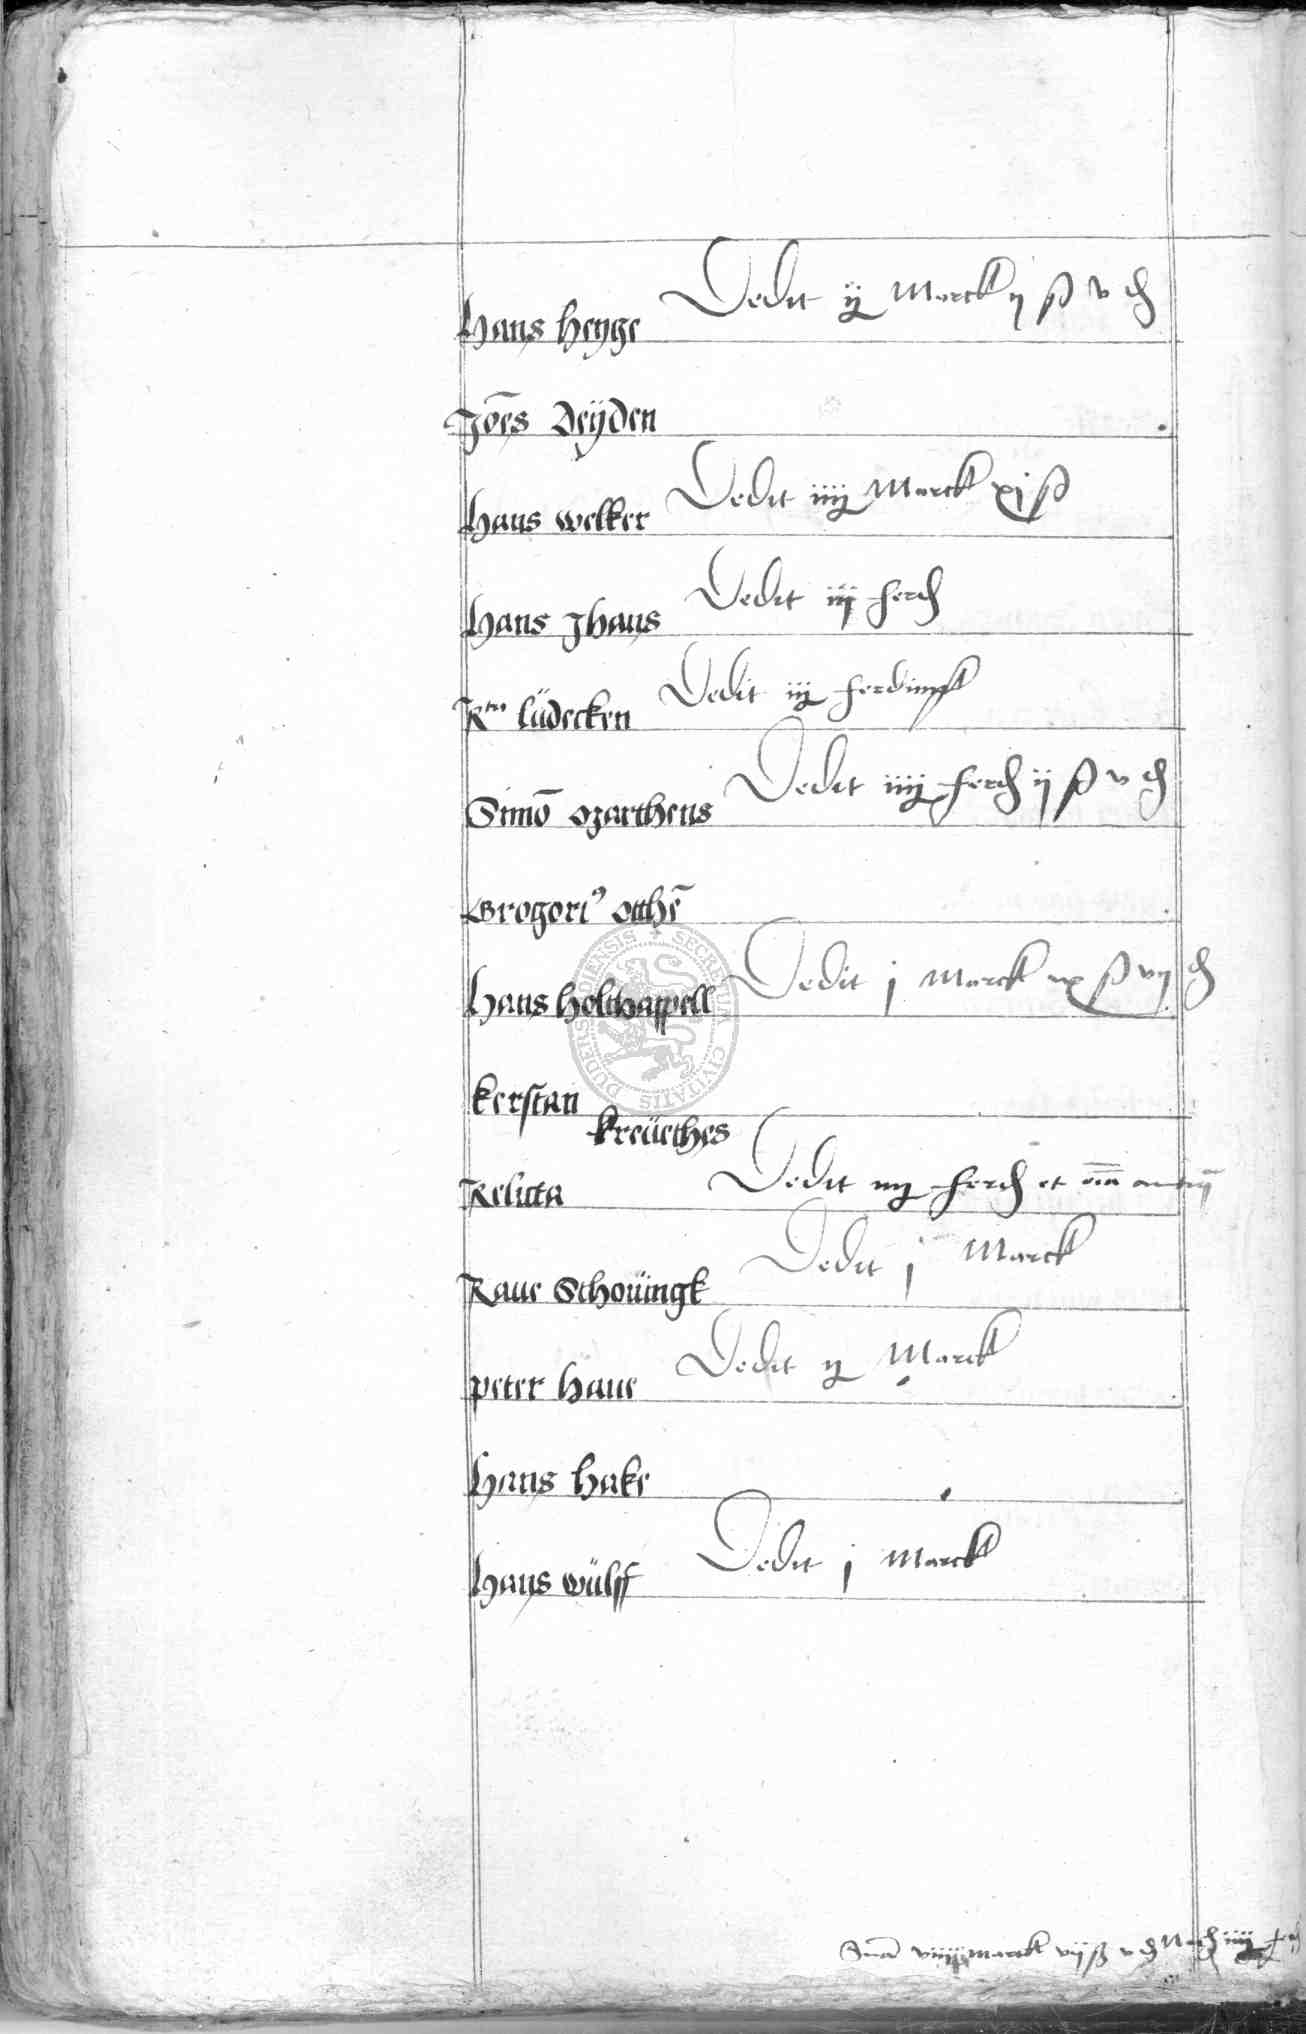 Hans Heyge Dedit ij Marck ij ß v ₰
Joēs Deÿden
Hans welker Dedit iiij Marck xj ß
Hans Jhans Dedit iij ferd
Rcto lüdecken Dedit iij ferdingk
Simō Marthens Dedit iiij ferd ij ß v ₰
Gregori9 otthē
Hans Holthappell Dedit j Marck ix ß vij ₰
kerstan
kreüethes
Relicta Dedit iij ferd et
Raue Schouingk Dedit j Marck
peter Haue Dedit ij Marck
Hans Hake
Hans wülff Dedit j Marck
marck vij ß v ₰
SECRETUM CIVITATIS DUDERSTADIENSIS